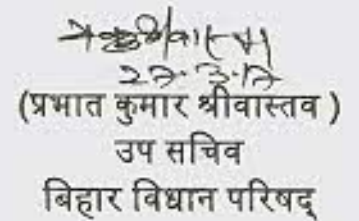 27.3.17
(प्रभात कुमार श्रीवास्तव )
उप सचिव
बिहार विधान परिषद्